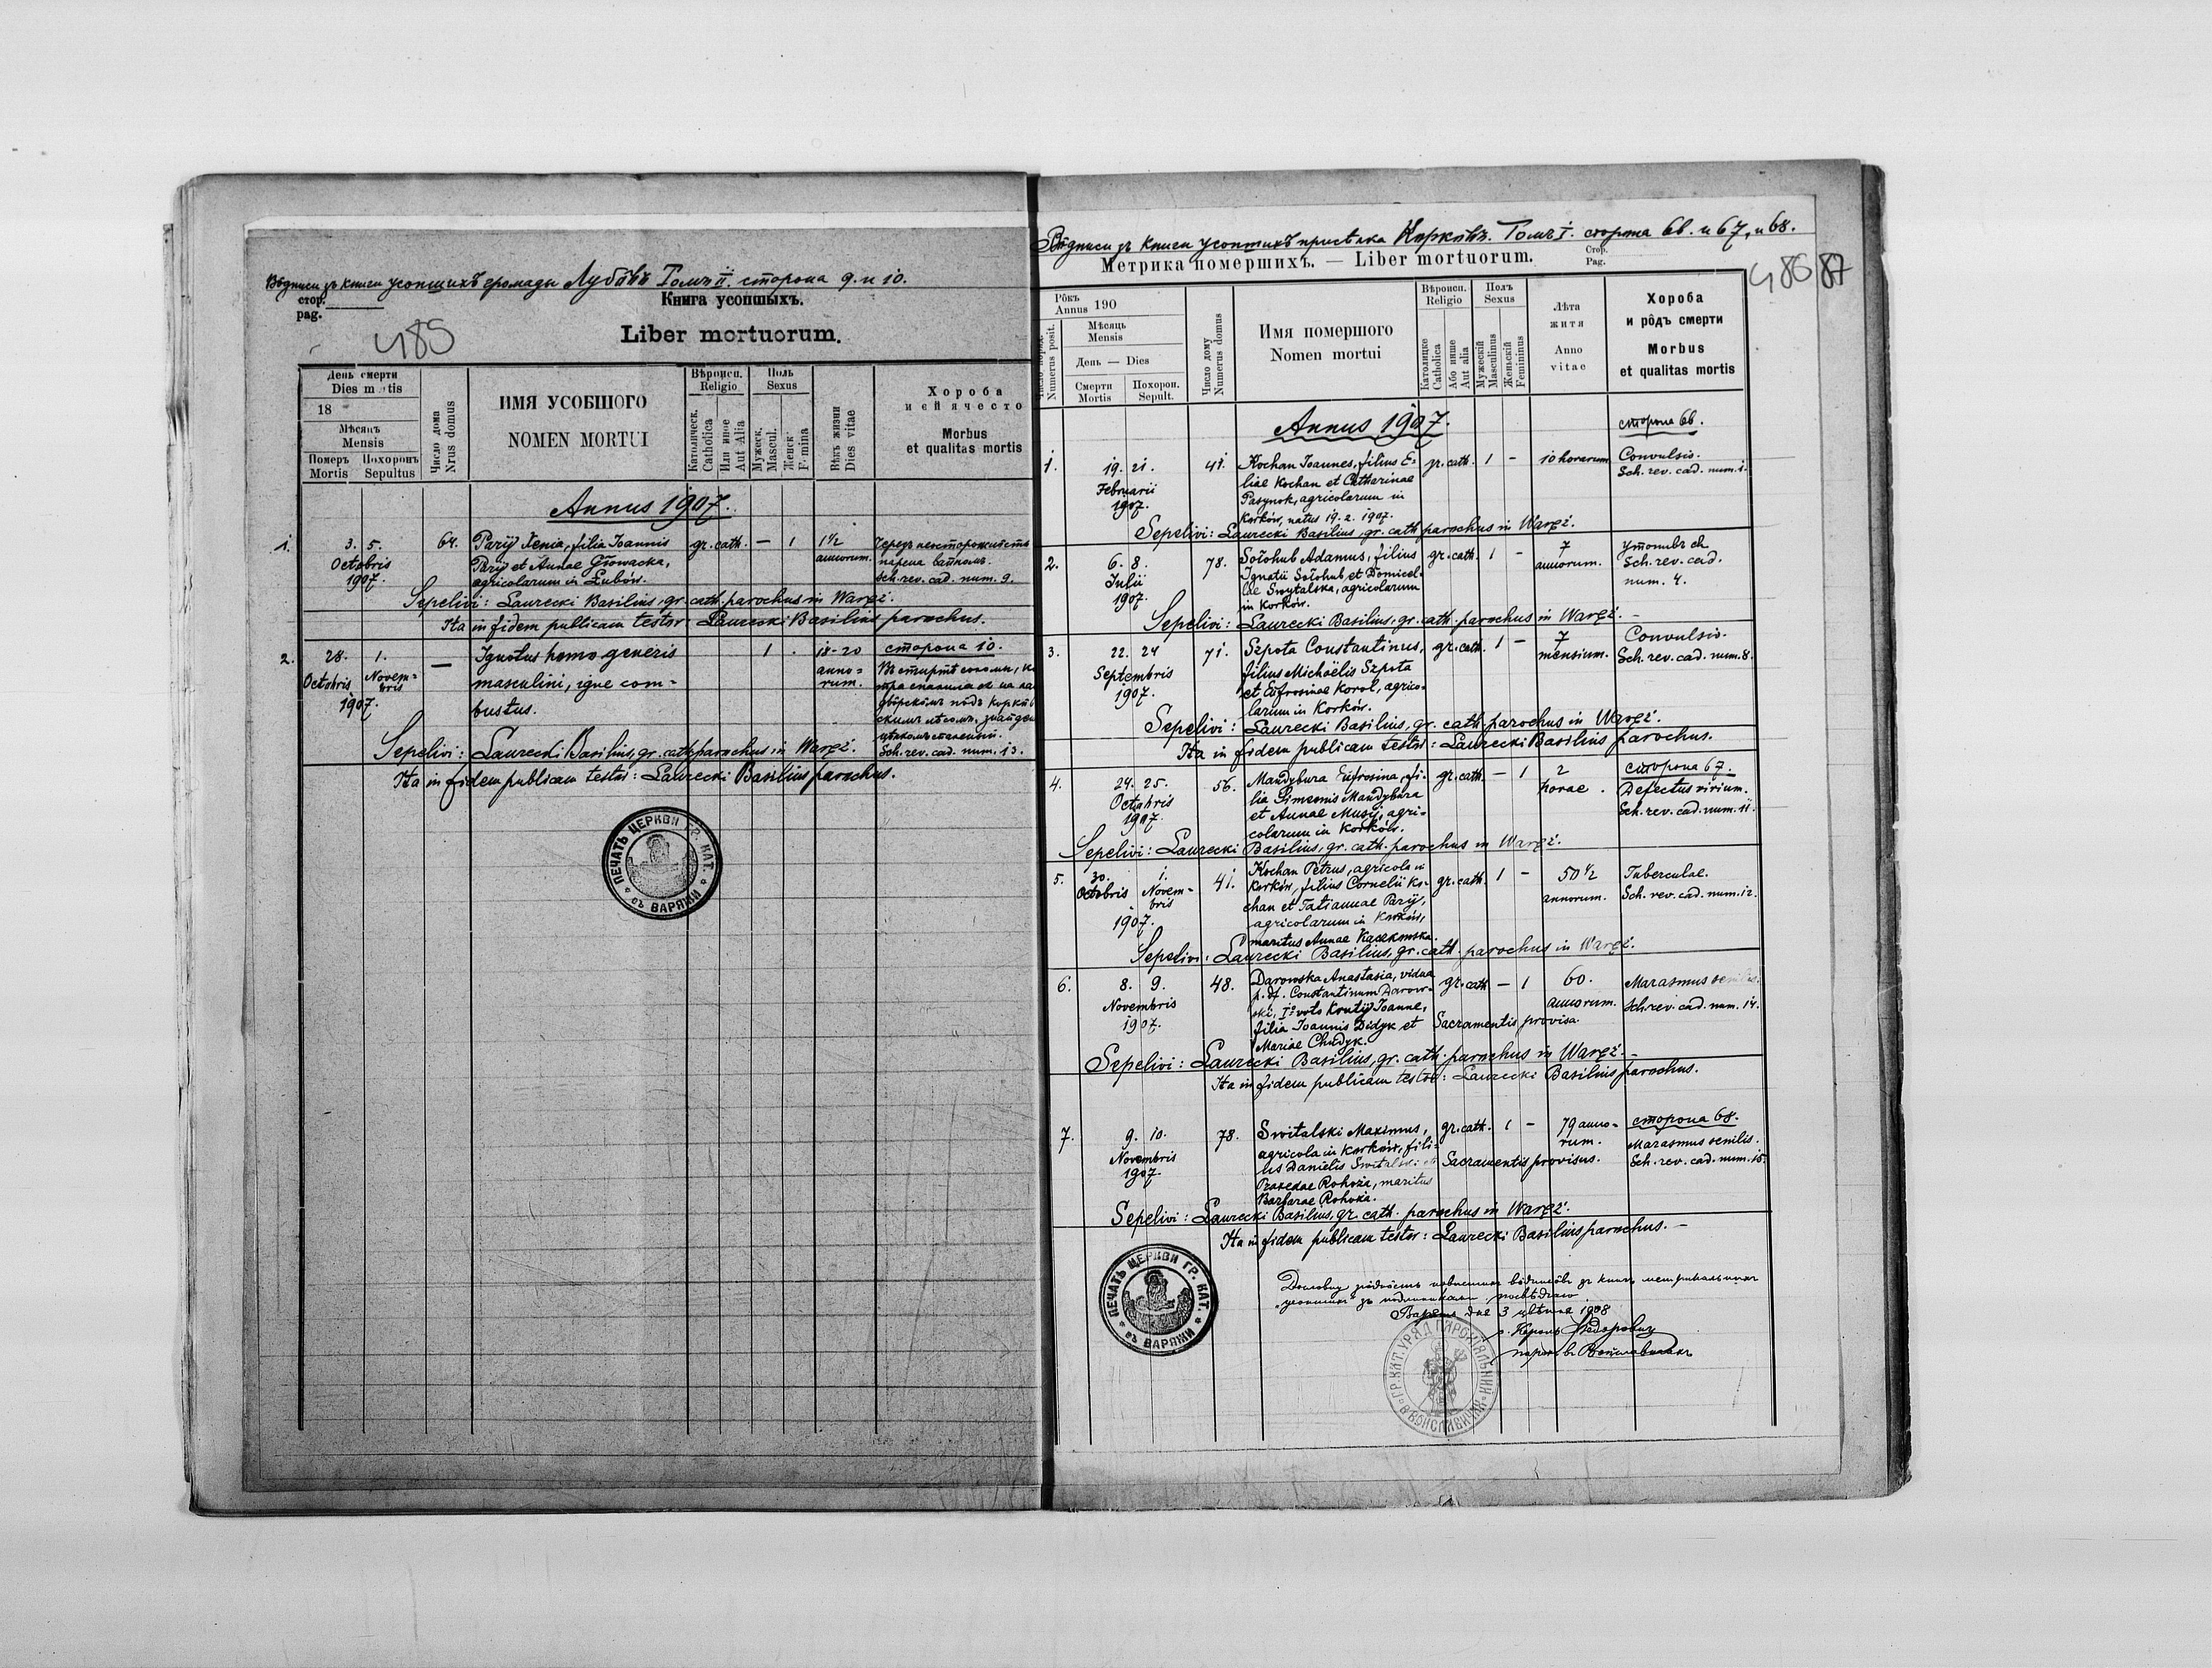 Водписи зъ книги усопшихъ громады Лубôвъ Томъ II. сторона 9. и 10.
стор.
pag.
Книга усопшыхъ.
485
Liber mortuorum.
День смерти
Dies mortis
18
Мѣсяцъ
Mensis
Померъ Mortis
Похоронъ Sepultus
Число дома
Nrus domus
ИМЯ УСОБШОГО
NOMEN MORTUI
Вѣроисп.
Religio
Католическ.
Catholica
Или иное
Aut Alia
Поль
Sexus
Мужеск.
Mascul.
Женск.
Fmina
Вѣкъ жизни
Dies vitae
Хороба
и еѣ ячесто
Morbus
et qualitas mortis
Annus 1907.
1. 3. 5. 64. Paryj Xenia, filia Joannis gr. cath. — 1 1½
Octobris Paryj et Annae Głowacka, annorum.
1907. agricolarum in Łubów. Sch. rev. cad. num. 9.
Sepelivi: Laurecki Basilius, gr. cath. parochus in Waręż.
Ita in fidem publicam testor: Laurecki Basilius parochus.
2. 28. 1. — Ignotus homo generis 1 . 18-20 сторона 10.
Octobris Novem- masculini, igne com- anno-
bris
1907. bustus. rum.
Sepelivi: Laurecki Basilius, gr. cath. parochus in Waręż. Sch. rev. cad. num. 13.
Ita in fidem publicam testor: Laurecki Basilius parochus.
ПЕЧАТЬ ЦЕРКВИ ГР. КАТ. въ ВАРЯЖИ
Водписи зъ книги усопшихъ присѣлка Корковъ. Томъ I. сторона 66. и 67. и 68.
Метрика помершихъ. — Liber mortuorum.
Стор.
Pag.
486 87
Numerus posit.
Рôкъ
Annus 190
Мѣсяць
Mensis
День — Dies
Смерти
Mortis
Похорон.
Sepult.
Число дому
Numerus domus
Имя помершого
Nomen mortui
Вѣроисп.
Religio
Католицке
Catholica
Або инше
Aut alia
Полъ
Sexus
Мужескій
Masculinus
Женьскій
Femininus
Лѣта
житя
Anno
vitae
Хороба
и рôдъ смерти
Morbus
et qualitas mortis
Annus 1907. сторона 66.
1. 19. 21. 41. Kochan Joannes, filius E- gr. cath. 1 – 10 horarum Convulsio.
Februarii liae Kochan et Catharinae Sch. rev. cad. num. 1.
1907. Pasynok, agricolarum in
Korków, natus 19. 2. 1907.
Sepelivi: Laurecki Basilius, gr. cath. parochus in Waręż.
2. 6. 8. 78. Sołohub Adamus, filius gr. cath. 1 – 7
Julii Ignatii Sołohub et Domicel- annorum. Sch. rev. cad.
1907. lae Swytalska, agricolarum num. 4.
in Korków.
Sepelivi: Laurecki Basilius, gr. cath. parochus in Waręż. –
3. 22. 24 71. Szpota Constantinus, gr. cath. 1 – 7 Convulsio.
Septembris filius Michaëlis Szpota mensium. Sch. rev. cad. num. 8.
1907. et Eufrosinae Korol, agrico-
larum in Korków.
Sepelivi: Laurecki Basilius, gr. cath. parochus in Waręż.
Ita in fidem publicam testor: Laurecki Basilius parochus.
4. 24. 25. 56. Mandybura Eufrosina, fi- gr. cath. — 1 2 сторона 67.
Octobris lia Simeonis Mandybura horae. Defectus virium.
1907. et Annae Musij, agri- Sch. rev. cad. num. 11.
colarum in Korków.
Sepelivi: Laurecki Basilius, gr. cath. parochus in Waręż.
5. 30. 1. 41. Kochan Petrus, agricola in gr. cath. 1 – 50½ Tuberculae.
Octobris Novem- Korków, filius Cornelii Ko- annorum. Sch. rev. cad. num. 12.
bris chan et Tatiannae Paryj,
1907. agricolarum in Korków,
maritus Annae
Sepelivi: Laurecki Basilius, gr. cath. parochus in Waręż.
6. 8. 9. 48. Darowska Anastasia, vidua gr. cath — 1 60. Marasmus senilis.
Novembris p. df. Constantinum Darow- annorum. Sch. rev. cad. num. 14.
1907. ski, I° voto Krutij Joanne, Sacramentis provisa.
filia Joannis Didyk et
Mariae Chudyk.
Sepelivi: Laurecki Basilius, gr. cath. parochus in Waręż. –
Ita in fidem publicam testor: Laurecki Basilius parochus.
7. 9. 10. 78. Switalski Maximus, gr. cath. 1 – 79 anno- сторона 68.
Novembris agricola in Korków, fili- rum. Marasmus senilis.
1907. us Danielis Switalski et Sacramentis provisus. Sch. rev. cad. num. 15.
Praxedae Rohoża, maritus
Barbarae Rohoża.
Sepelivi: Laurecki Basilius, gr. cath. parochus in Waręż.
Ita in fidem publicam testor: Laurecki Basilius parochus. –
ПЕЧАТЬ ЦЕРКВИ ГР. КАТ. въ ВАРЯЖИ
дня 3 цвѣтня 1908